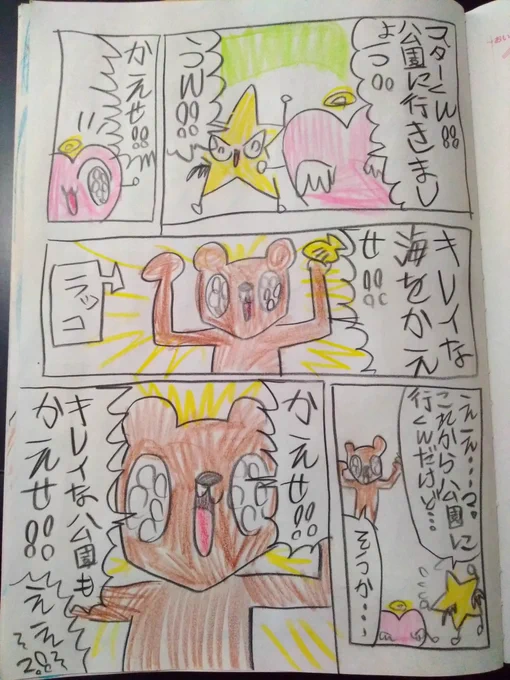 スターくん!!
公園に行きまし
ょう!!
うん!!
かえせ!!
キレイな
海をかえ
せ!!
ラッコ
ええ…?
これから公園に
行くんだけど…
そうか…
かえせ!!
キレイな公園も
かえせ!!
ええ